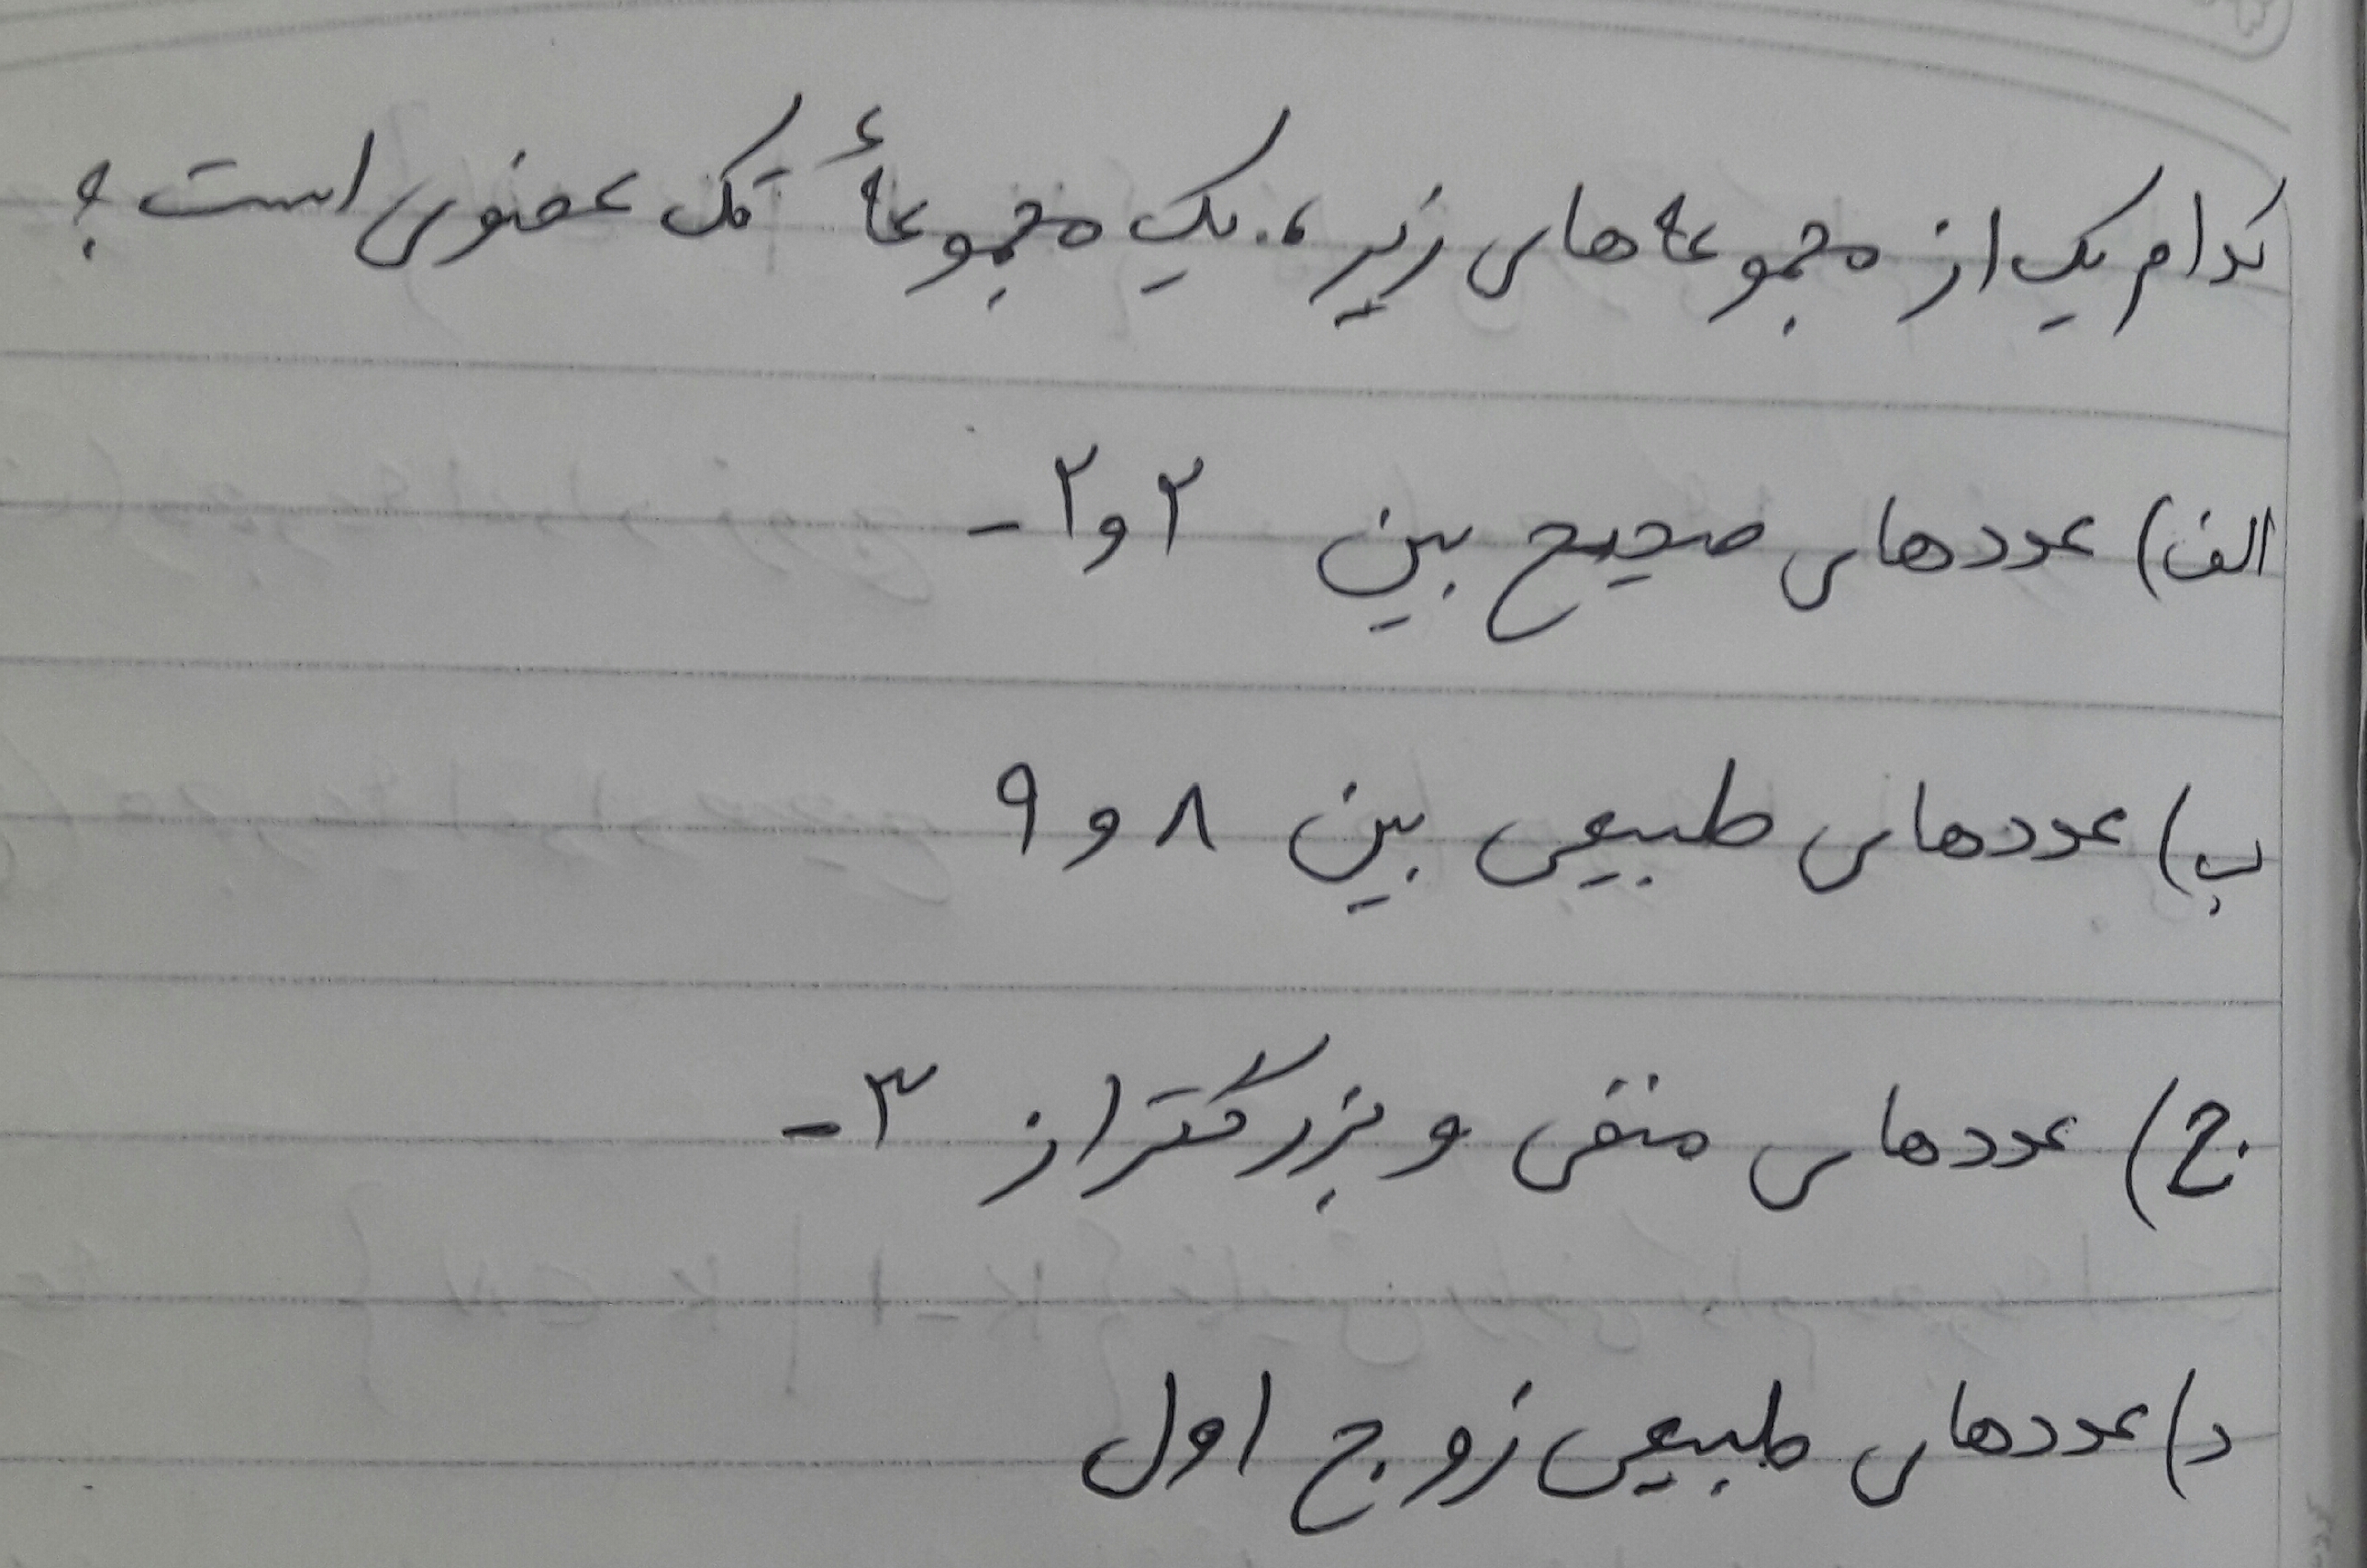 کدام یک از مجموعه‌های زیر، یک مجموعهٔ تک عضوی است؟
الف) عددهای صحیح بین ۲ و ۲-
ب) عددهای طبیعی بین ۸ و ۹
ج) عددهای منفی و بزرگتر از ۳-
د) عددهای طبیعی زوج اول